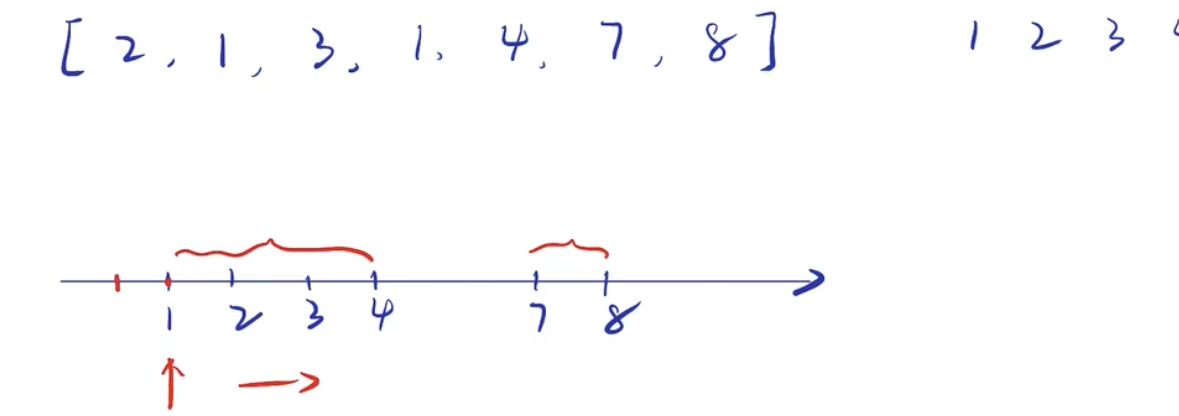 [2, 1, 3, 1, 4, 7, 8] 1 2 3
1 2 3 4 7 8